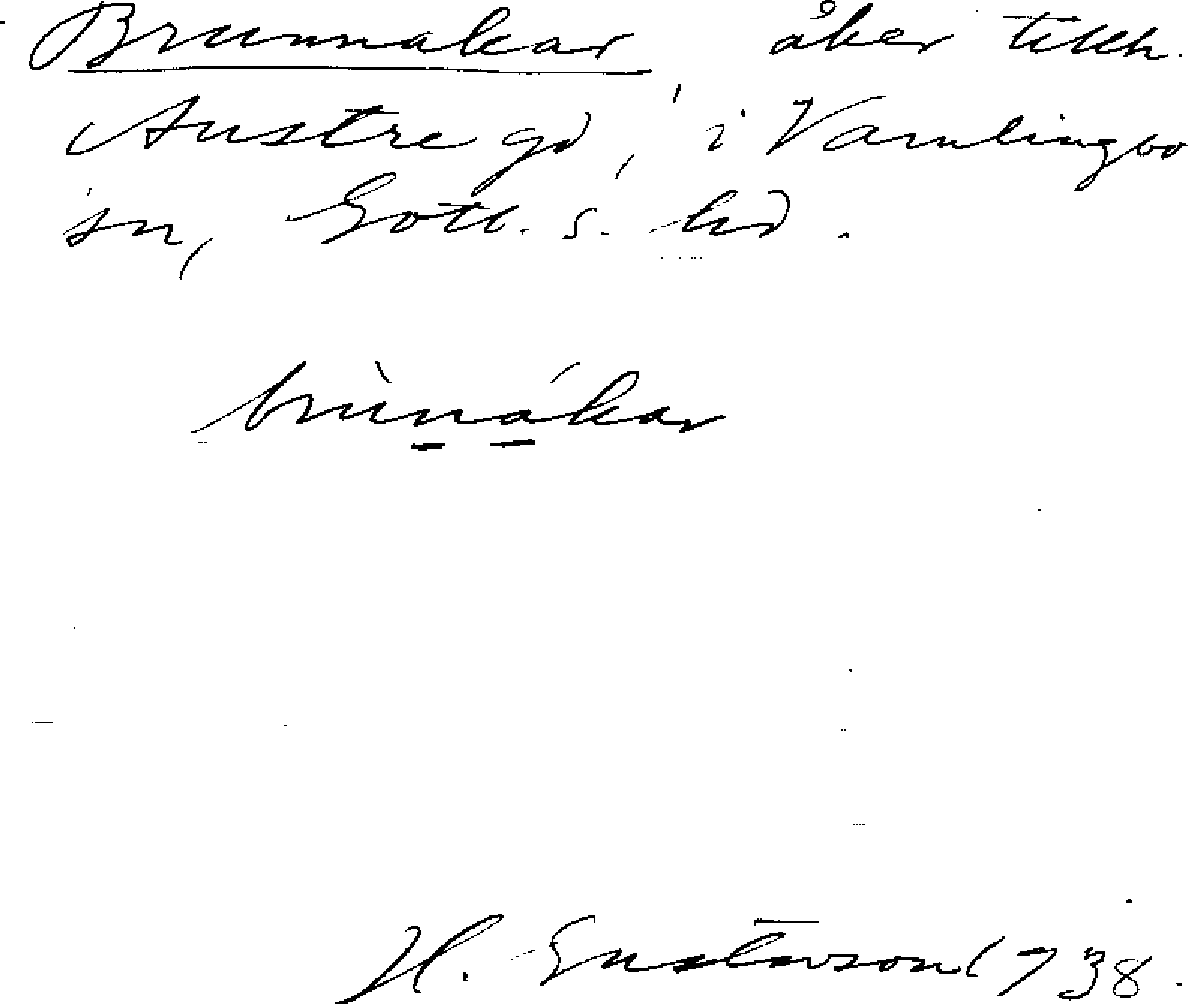 Brunnakar åker tillh.
Austre gd, i Vamlingbo
sn, Gotl. s. hd.
brùnákar
H. Gustavson 1938.